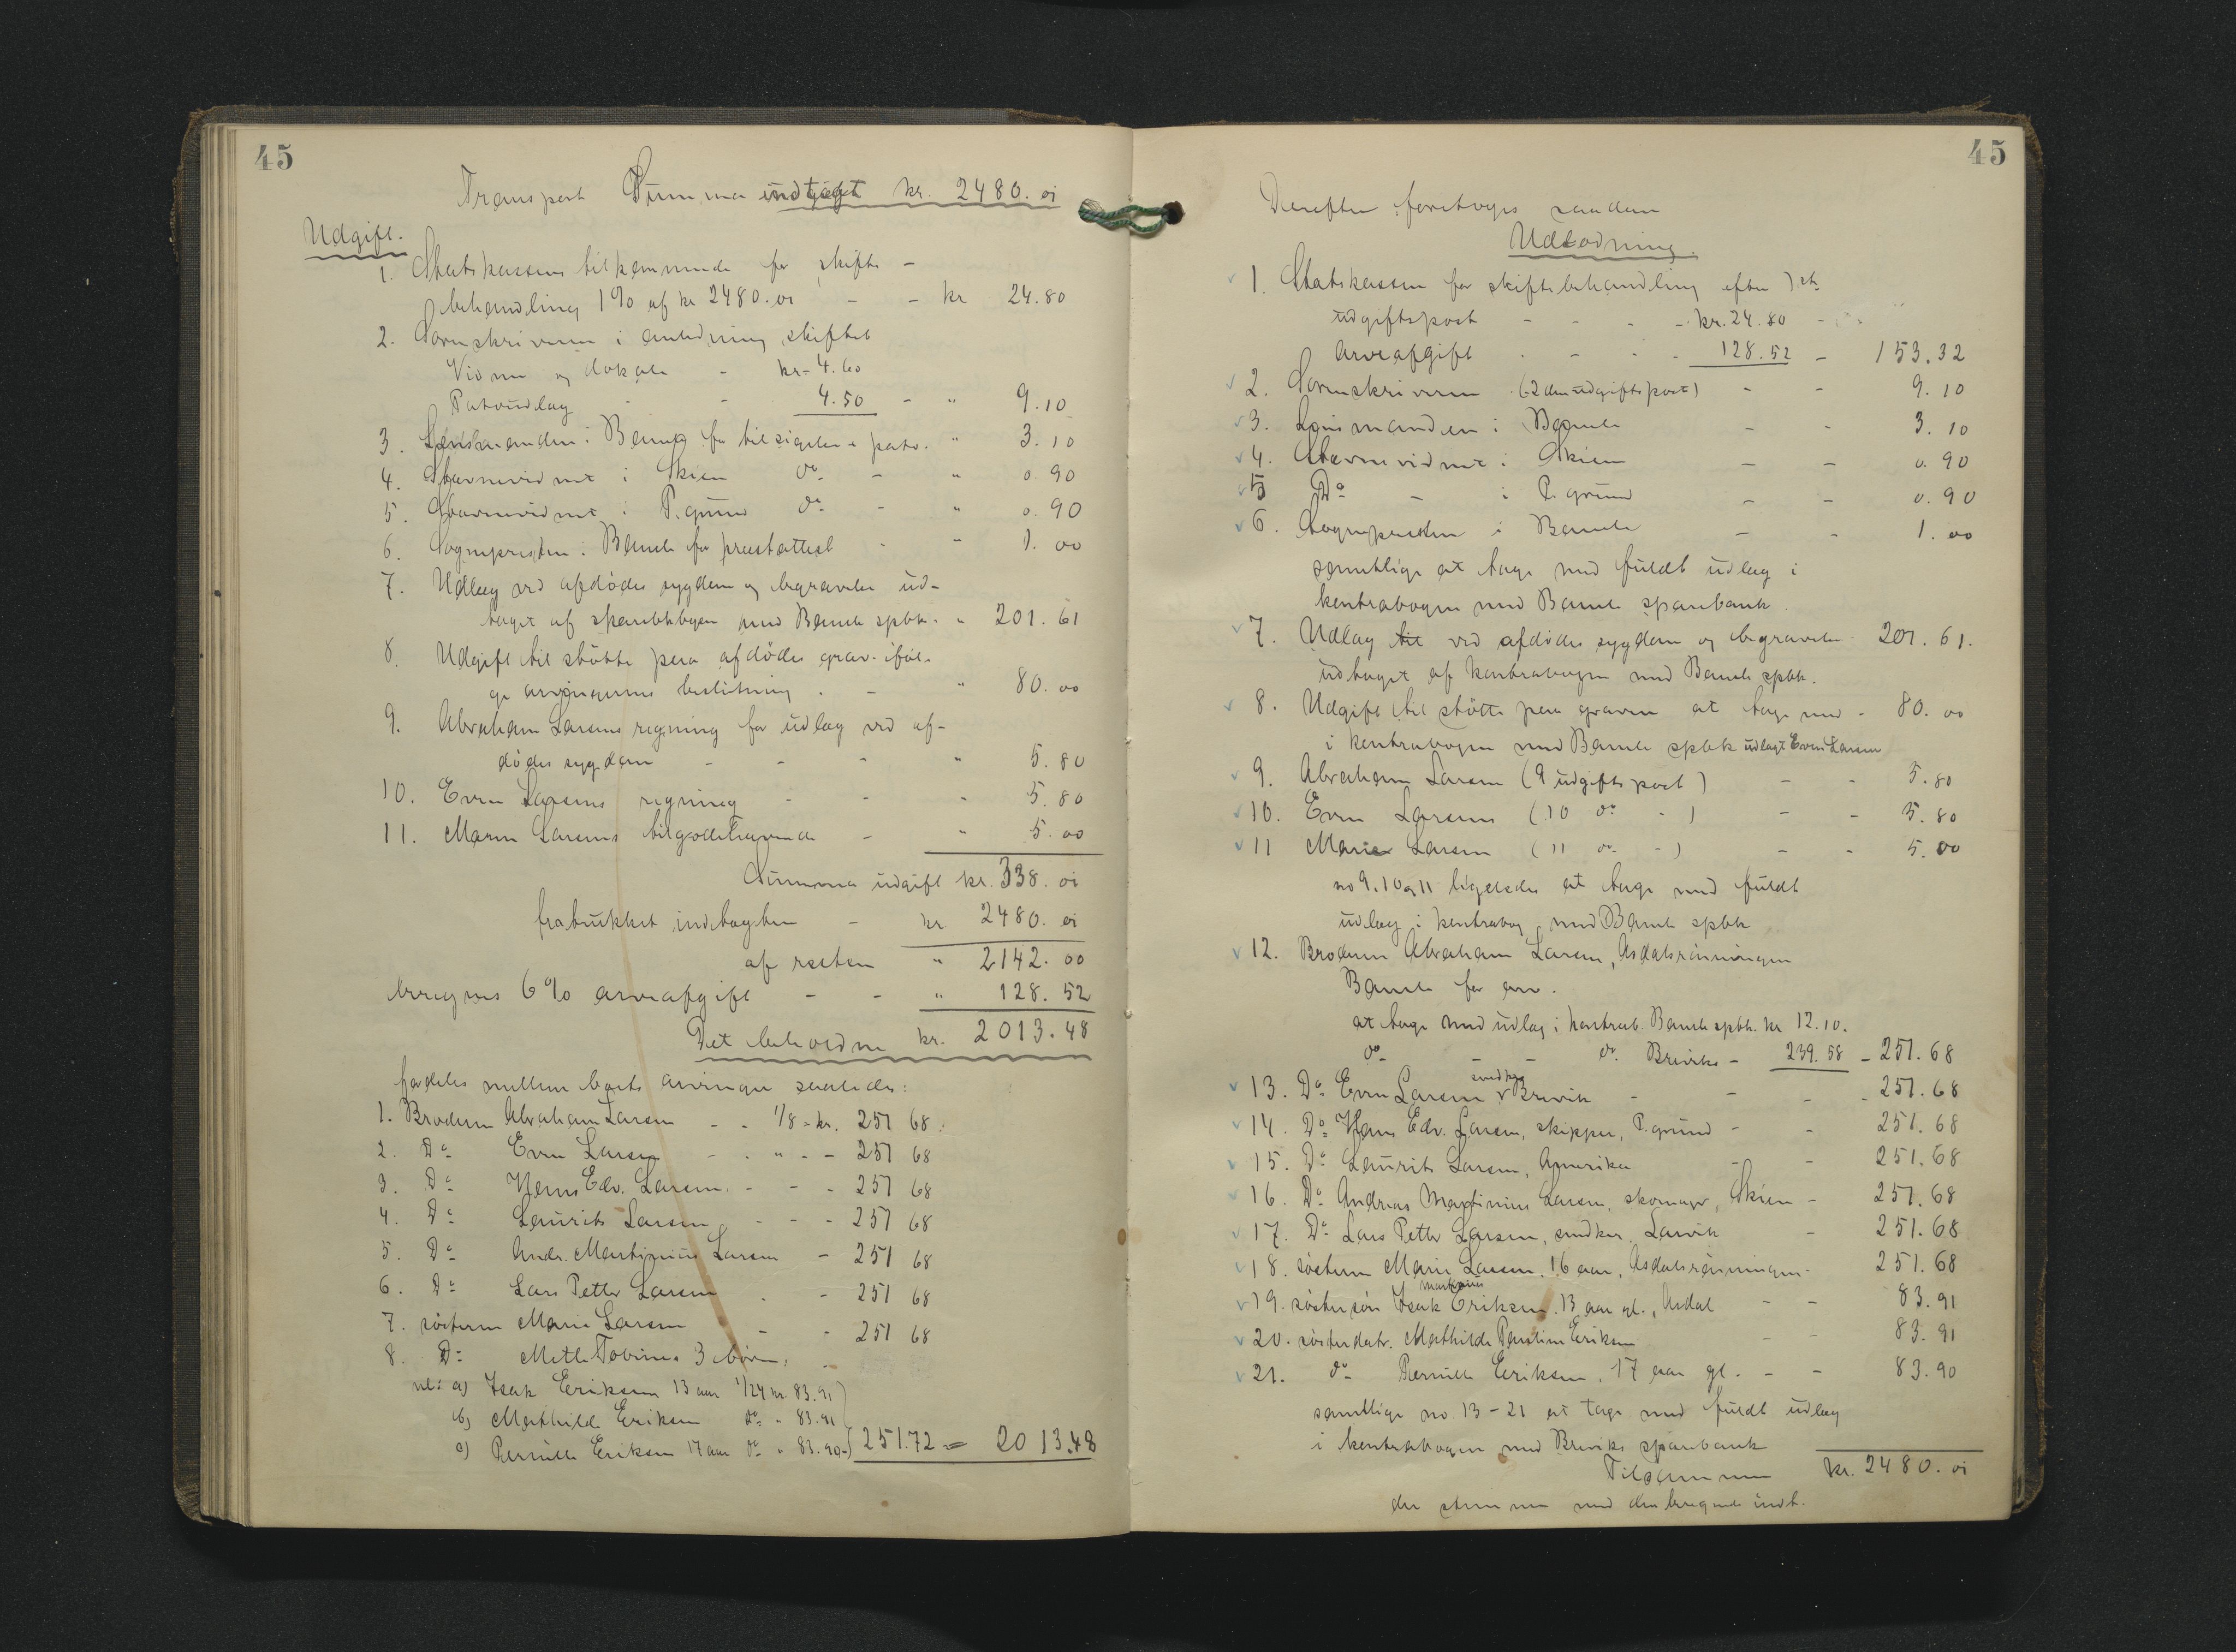 45
Transport Summa indtægt kr. 2480.01
Udgift.
1. Statskassens tilkommende for skifte-
behandling 1% af kr 2480.01 - - kr 24.80
2. Sorenskriveren i anledning skiftet
Vidne og lokale - kr. 4.60
Portoudlæg - - 4.50 - " 9.10
3. Lensmanden i Bamle for tilsigelse + porto. " 3.10
4. Stevnevidnet i Skien do - " 0.90
5. Stevnevidnet i P.grund do - " 0.90
6. Sognpresten i Bamle for presteattest - - 1.00
7. Udlæg ved afdødes sygdom og begravelse ud-
taget af sparebkbogen med Bamle spbk. " 201.61
8. Udgift til støtte paa afdødes grav iføl-
ge arvingernes beslutning . - " 80.00
9. Abraham Larsens regning for udlæg ved af-
dødes sygdom - - - " 5.80
10. Even Larsens regning - - - 5.80
11. Maren Larsens tilgodehavende - " 5.00
Summa udgift kr. 338.01
fratrukket indtægten - kr 2480.01
af resten " 2142.00
beregnes 6% arveafgift - - " 128.52
Det beholdne kr. 2013.48
fordeles mellem boets arvinger saaledes:
1. Broderen Abraham Larsen - - 1/8 = kr. 251 68
2. Do Even Larsen - - " - - 251 68
3. Do Hans Edv. Larsen - - - 251 68
4. Do Laurits Larsen - - - 251 68
5. Do Andr. Martinius Larsen - 251 68
6. Do Lars Petter Larsen - - 251 68
7. søsteren Marie Larsen - - 251 68
8. Do Mette Tobines 3 børn,
nl: a) Isak Eriksen 13 aar 1/24 kr. 83.91
b) Mathilde Eriksen do " 83.91
c) Pernille Eriksen 17 aar do " 83.90 251.72 = 2013.48
45
Derefter foretoges saadan
Udlodning.
1. Statskassen for skiftebehandling efter 1ste
udgiftspost - - - - kr. 24.80 -
Arveafgift . - - - 128.52 - 153.32
2. Sorenskriveren (2den udgiftspost) - - 9.10
3. Lensmanden i Bamle - - 3.10
4. Stevnevidnet i Skien - - 0.90
5 Do - i P.grund - - 0.90
6. Sognepresten i Bamle - - 1.00
samtlige at tage med fuldt udlæg i
kontrabogen med Bamle sparebank.
7. Udlæg til ved afdødes sygdom og begravelse 201.61.
udtaget af kontrabogen med Bamle spbk.
8. Udgift til støtte paa graven at tage med - 80.00
i kontrabogen med Bamle spbk udlagt Even Larsen
9. Abraham Larsen (9 udgiftspost) - - 5.80
10. Even Larsens (10 do - ) - - 5.80
11 Marie Larsen (11 do - ) - - 5.00
no 9.10 og 11 ligeledes at tage med fuldt
udlæg i kontrabog med Bamle spbk
12. Broderen Abraham Larsen, Asdalsrønningen
Bamle for arv.
at tage med udlæg i kontrab. Bamle spbk. kr 12.10.
do - - do. Breviks - 239.58 - 251.68
13. Do Even Larsen snedker Brevik - - - - 251.68
14. Do Hans Edv. Larsen, skipper, P.grund - - 251.68
15. Do Laurits Larsen, Amerika - - 251.68
16. Do Andreas Martinius Larsen, skomager, Skien - 251.68
17. Do Lars Petter Larsen, snedker, Larvik - 251.68
18. søsteren Marie Larsen, 16 aar, Asdalsrønningen - 251.68
19. søstersøn Isak Martinius Eriksen, 13 aar gl., Asdal - - 83.91
20. søsterdatr. Mathilde Pauline Eriksen - - 83.91
21. do Pernille Eriksen, 17 aar gl. - - 83.90
samtlige no 13-21 at tage med fuldt udlæg
i kontrabogen med Breviks sparebank
Tilsammen kr. 2480.01
der stemmer med den beregnede indt.